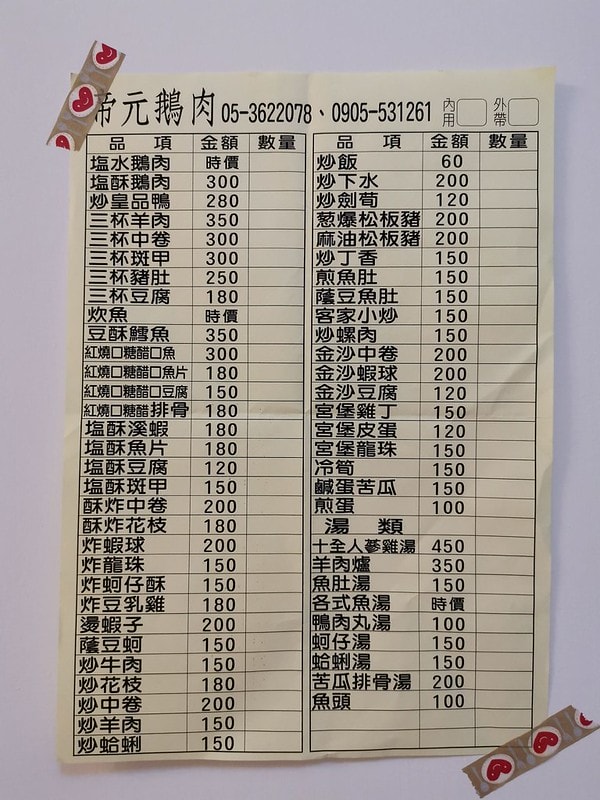 帝元鵝肉 05-3622078、0905-531261 內用 外帶
品項 金額 數量
塩水鵝肉 時價
塩酥鵝肉 300
炒皇品鴨 280
三杯羊肉 350
三杯中卷 300
三杯斑甲 300
三杯豬肚 250
三杯豆腐 180
炊魚 時價
豆酥鱈魚 350
紅燒口糖醋口魚 300
紅燒口糖醋口魚片 180
紅燒口糖醋口豆腐 150
紅燒口糖醋排骨 180
塩酥溪蝦 180
塩酥魚片 180
塩酥豆腐 120
塩酥斑甲 150
酥炸中卷 200
酥炸花枝 180
炸蝦球 200
炸龍珠 150
炸蚵仔酥 150
炸豆乳雞 180
燙蝦子 200
蔭豆蚵 150
炒牛肉 150
炒花枝 180
炒中卷 200
炒羊肉 150
炒蛤蜊 150
品項 金額 數量
炒飯 60
炒下水 200
炒劍筍 120
葱爆松板豬 200
麻油松板豬 200
炒丁香 150
煎魚肚 150
蔭豆魚肚 150
客家小炒 150
炒螺肉 150
金沙中卷 200
金沙蝦球 200
金沙豆腐 120
宮堡雞丁 150
宮堡皮蛋 120
宮堡龍珠 150
冷筍 150
鹹蛋苦瓜 150
煎蛋 100
湯類
十全人蔘雞湯 450
羊肉爐 350
魚肚湯 150
各式魚湯 時價
鴨肉丸湯 100
蚵仔湯 150
蛤蜊湯 150
苦瓜排骨湯 200
魚頭 100